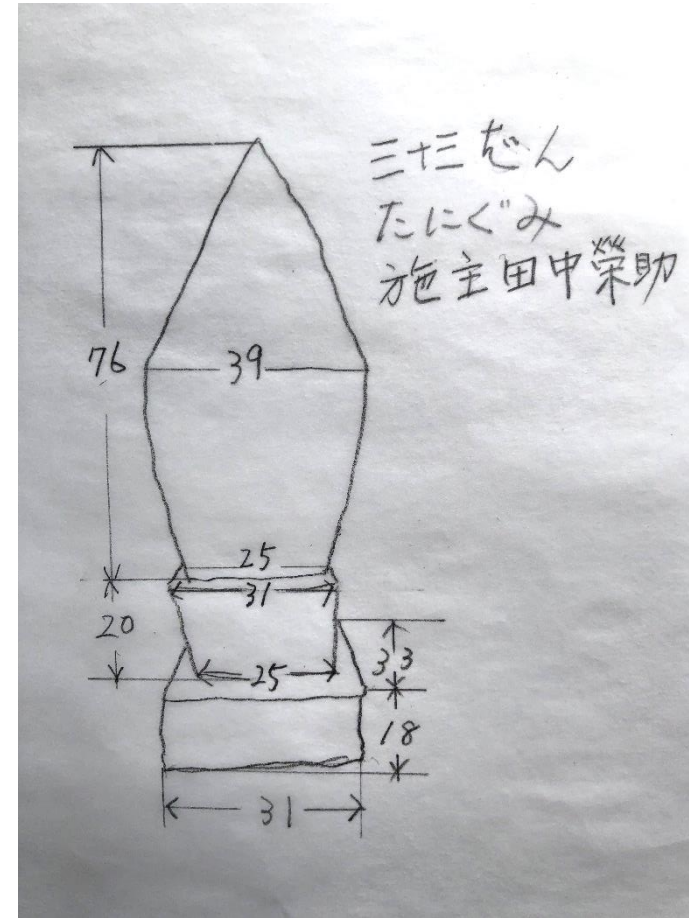 三十三ばん
たにぐみ
施主田中榮助
76
39
25
31
20
33
25
18
31